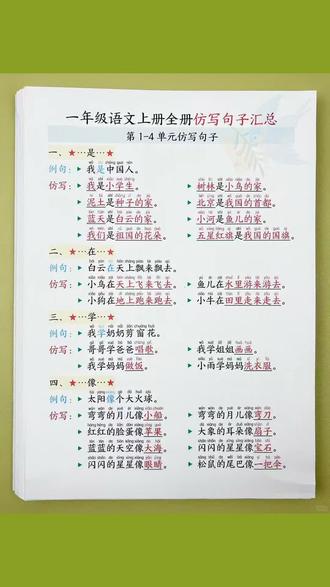 一年级语文上册全册仿写句子汇总
第1-4单元仿写句子
一、★…是…★
例句：我是中国人。
仿写：我是小学生。 树林是小鸟的家。
泥土是种子的家。 北京是我国的首都。
蓝天是白云的家。 小河是鱼儿的家。
我们是祖国的花朵。 五星红旗是我国的国旗。
二、★…在…★
例句：白云在天上飘来飘去。
仿写：小鸟在天上飞来飞去。 鱼儿在水里游来游去。
小狗在地上跑来跑去。 小牛在田里走来走去。
三、★…学…★
例句：我学妈妈剪窗花。
仿写：哥哥学爸爸唱歌。 我学姐姐画画。
我学妈妈做饭。 小雨学妈妈洗衣服。
四、★…像…★
例句：太阳像个大火球。
仿写：弯弯的月儿像小船。 弯弯的月儿像弯刀。
红红的脸蛋像苹果。 大象的耳朵像扇子。
蓝蓝的天空像大海。 闪闪的星星像宝石。
闪闪的星星像眼睛。 松鼠的尾巴像一把伞。